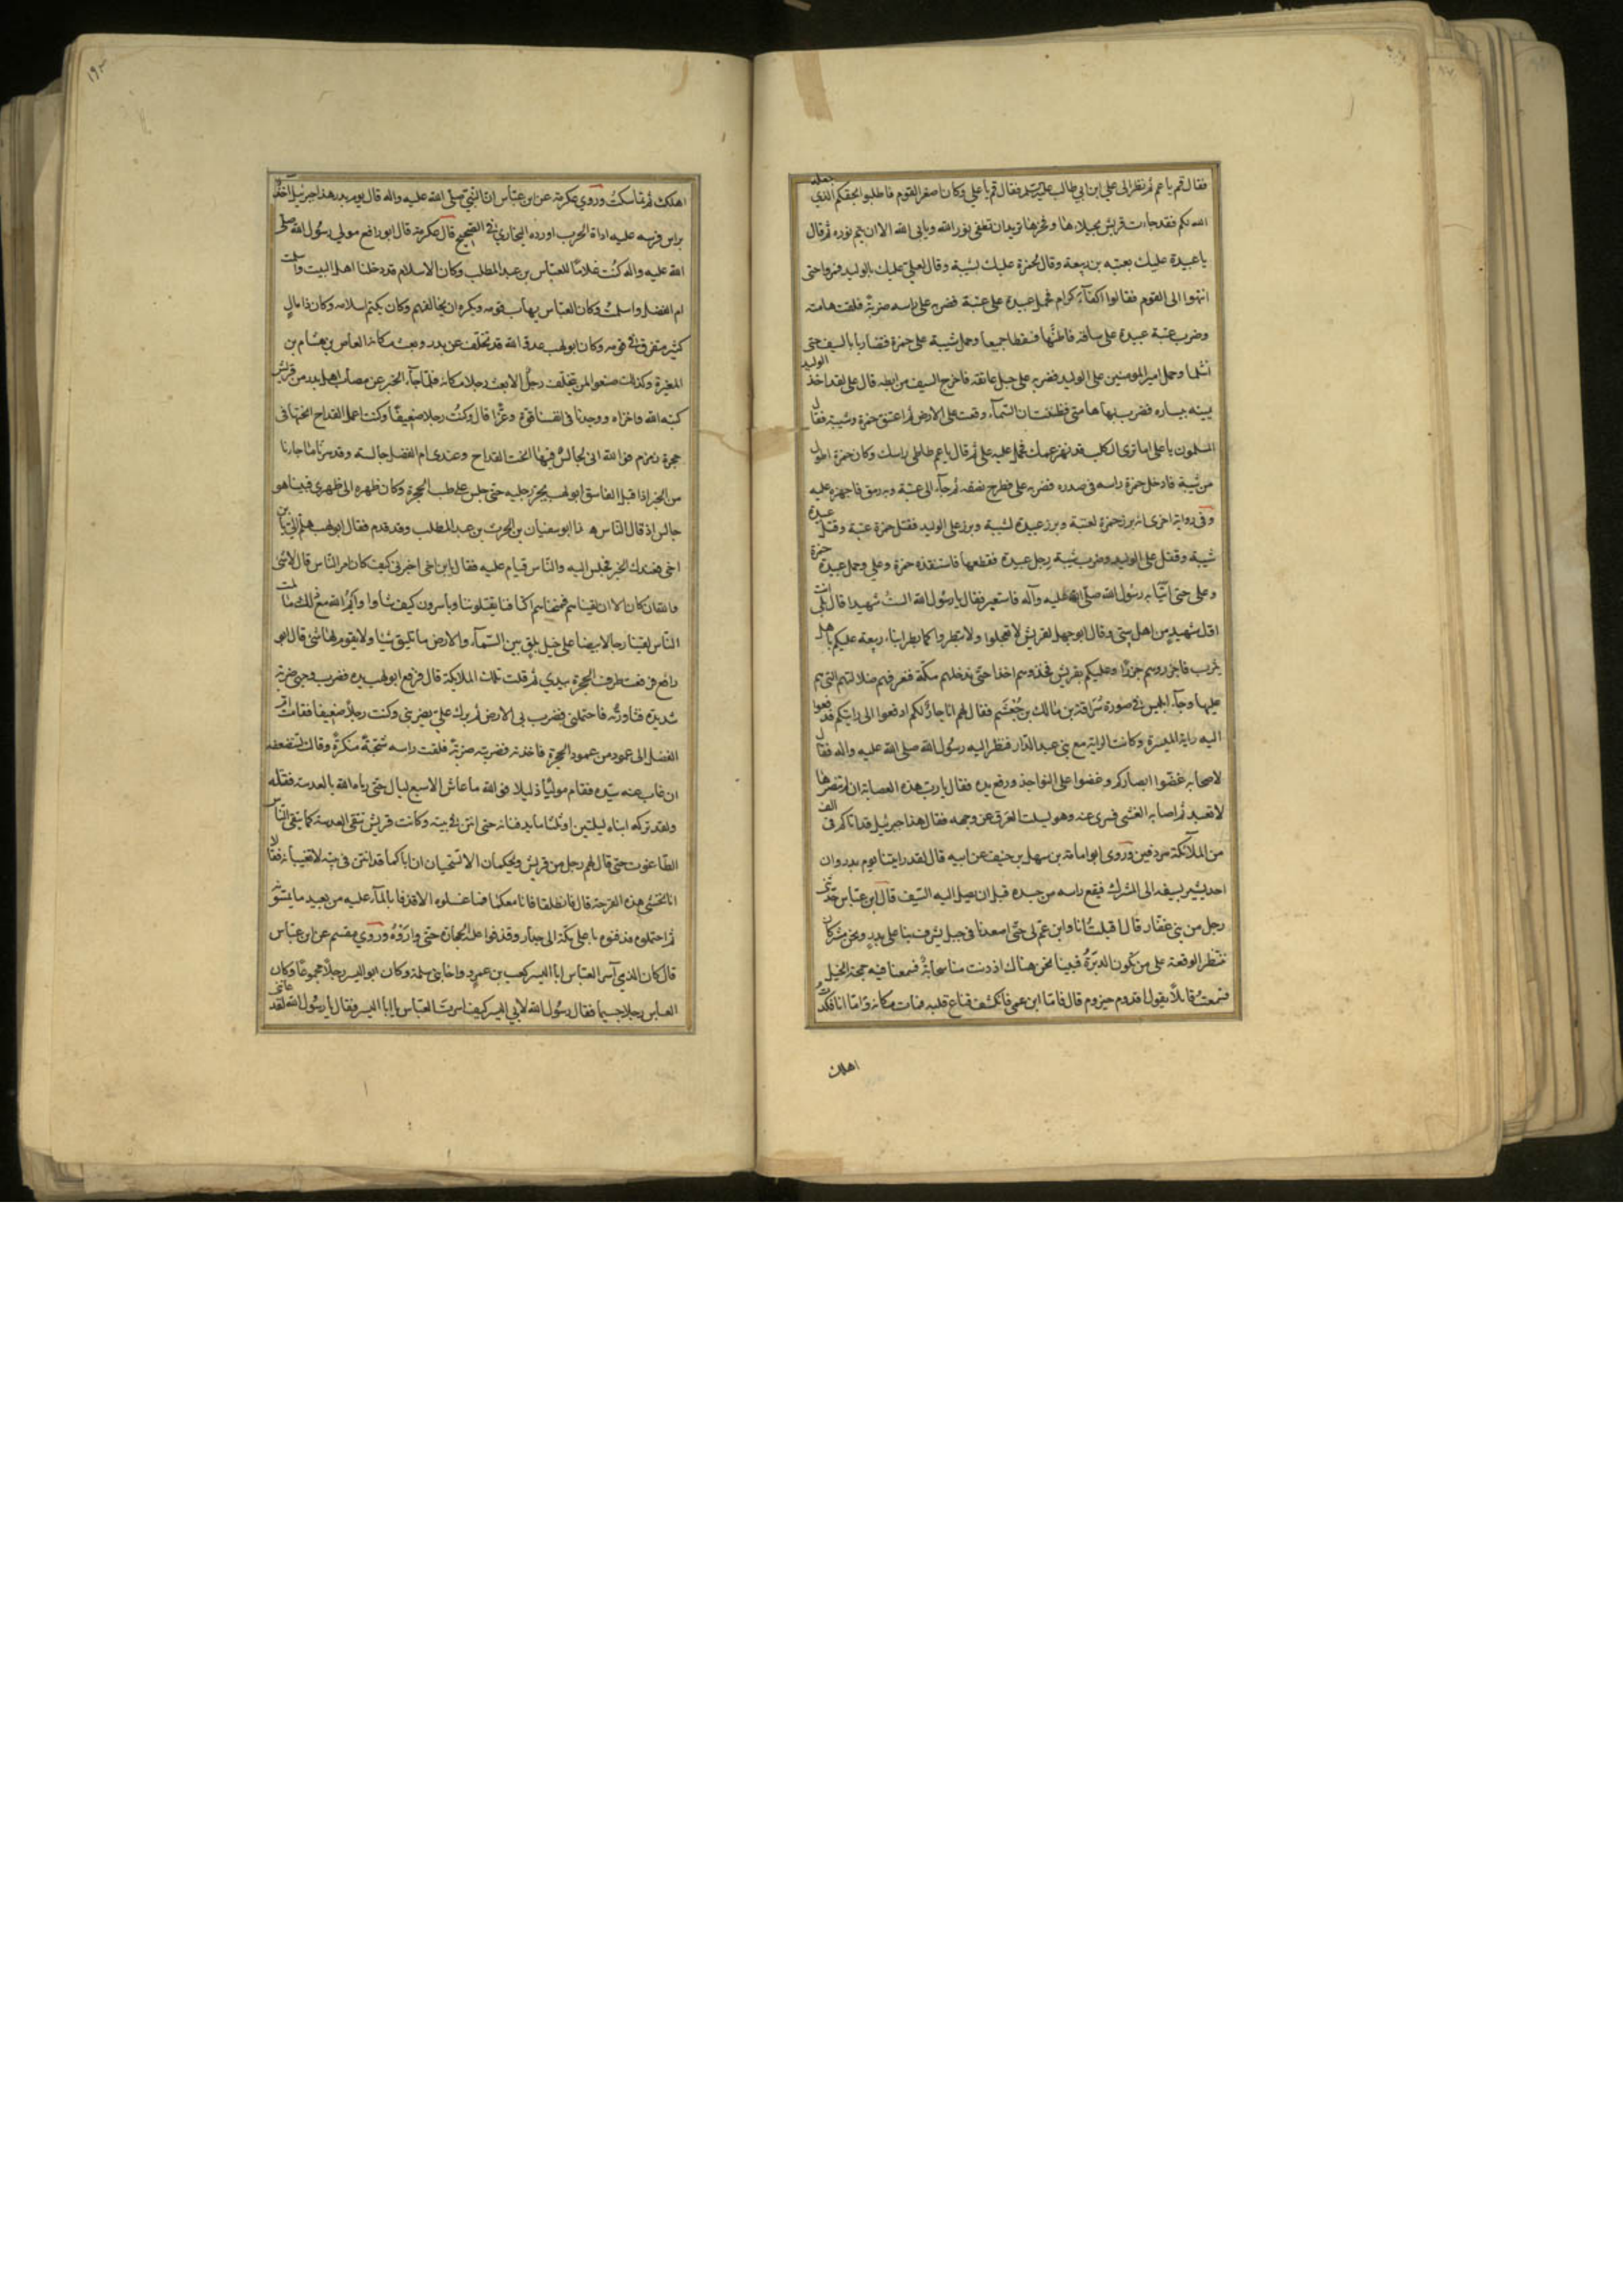 فقال قم يا عم ثم نظر الى علي ابن ابي طالب عليه السلم فقال قم يا علي وكان اصغر القوم فاطلبوا بحقكم الذي جعله
الله لكم فقد جاءت قريش بخيلاءها وفخرها تريد ان تطفئ نور الله ويابى الله الا ان يتم نوره ثم قال
يا عبيدة عليك بعتبه بن ربيعة وقال لحمزة عليك بشيبة وقال لعلي عليك بالوليد فمروا حتى
انتهوا الى القوم فقالوا اكفآء كرام فحمل عبيدة على عتبة فضربه على راسه ضربة فلقت هامته
وضرب عتبة عبيدة على ساقه فاطنها فسقطا جميعا وحمل شيبة على حمزة فتضاربا بالسيف حتى
انثلما وحمل امير المومنين على الوليد فضربه على حبل عاتقه فاخرج السيف من ابطه قال علي لقد اخذ الوليد
يمينه بيساره فضرب بها هامتي فظننت ان السمآء وقعت على الارض ثم اعتنق حمزة وشيبة فقال
المسلمون يا علي اما ترى الكلب قد نهز عمك فحمل عليه علي ثم قال يا عم طاطئ راسك وكان حمزة اطول
من شيبة فادخل حمزة راسه في صدره فضربه علي فطرح نصفه ثم جآء الى عتبة وبه رمق فاجهز عليه
وفي رواية اخرى انه برز حمزة لعتبة وبرز عبيدة لشيبة وبرز علي الوليد فقتل حمزة عتبة وقتل عبيدة
شيبة وقتل علي الوليد وضرب شيبة رجل عبيدة فقطعها فاستنقذه حمزة وعلي وحمل عبيدة حمزة
وعلي حتى اتيا به رسول الله صلى الله عليه وآله فاستعبر فقال يا رسول الله الست شهيدا قال بلى انت
اول شهيد من اهل بيتي وقال ابو جهل لقريش لا تعجلوا ولا تبطروا كما بطر ابناء ربيعة عليكم باهل
يثرب فاجزروهم جزرا وعليكم بقريش فخذوهم اخذا حتى ندخلهم مكة فنعرفهم ضلالتهم التي هم
عليها وجآء ابليس في صورة سراقة بن مالك بن جعشم فقال لهم انا جار لكم ادفعوا الى رايتكم فدفعوا
اليه راية الميسرة وكانت الراية مع بني عبد الدار فنظر اليه رسول الله صلى الله عليه واله فقال
لاصحابه غضوا ابصاركم وعضوا على النواجذ ورفع يده فقال يا رب هذه العصابة ان لم تنصرها
لا تعبد ثم اصابه الغشي فسري عنه وهو يسلت العرق عن وجهه فقال هذا جبرئيل قد اتاكم في الف
من الملآئكة مردفين وروى ابو امامة بن سهل بن حنيف عن ابيه قال لقد راينا يوم بدر وان
احدنا يشير بسيفه الى المشرك فيقع راسه من جسده قبل ان يصل اليه السيف قال ابن عباس حدثني
رجل من بني غفار قال اقبلت انا وابن عم لي حتى اصعدنا في جبل يشرف بنا على بدر ونحن مشركان
ننتظر الوقعة على من تكون الدبرة فبينا نحن هناك اذ دنت منا سحابة فسمعنا فيه حمحمة الخيل
فسمعت قايلا يقول اقدم حيزوم قال فاما ابن عمي فانكشف قناع قلبه فمات مكانه واما انا فكدت
اهلك
اهلك ثم تماسكت وروي عكرمة عن ابن عباس ان النبي صلى الله عليه واله قال يوم بدر هذا جبرئيل اخذ
براس فرسه عليه اداة الحرب اورده البخاري في الصحيح قال عكرمة قال ابو رافع مولى رسول الله صلى
الله عليه واله كنت غلاما للعباس بن عبد المطلب وكان الاسلام قد دخلنا اهل البيت واسلمت
ام الفضل واسلمت وكان العباس يهاب قومه ويكره ان يخالفهم وكان يكتم اسلامه وكان ذا مال
كثير متفرق في قومه وكان ابو لهب عدو الله قد تخلف عن بدر وبعث مكانه العاص بن هشام بن
المغيرة وكذلك صنعوا لم يتخلف رجل الا بعث رجلا مكانه فلما جآء الخبر عن مصاب اهل بدر من قريش
كبته الله واخزاه ووجدنا في انفسنا قوة وعزا قال وكنت رجلا ضعيفا وكنت اعمل القداح انحتها في
حجرة زمزم فوالله اني لجالس فيها انحت القداح وعندي ام الفضل جالسة وقد سرنا ما جاءنا
من الخبر اذ اقبل الفاسق ابو لهب يجر رجليه حتى جلس على طنب الحجرة وكان ظهره الى ظهري فبينا هو
جالس اذ قال الناس هذا ابو سفيان بن الحرث بن عبد المطلب وقد قدم فقال ابو لهب هلم الي يا ابن
اخي فعندك الخبر فجلس اليه والناس قيام عليه فقال يا بن اخي اخبرني كيف كان امر الناس قال لا شئ
والله ان كان الا ان لقيناهم فمنحناهم اكتافنا يقتلوننا وياسرون كيف شاوا وايم الله مع ذلك ما لمت
الناس لقينا رجالا بيضا على خيل بلق بين السمآء والارض ما تليق شيئا ولا يقوم لها شئ قال ابو
رافع فرفعت طرف الحجرة بيدي ثم قلت تلك الملايكة قال فرفع ابو لهب يده فضرب وجهي ضربة
شديدة فثاورته فاحتملني فضرب بي الارض ثم برك علي يضربني وكنت رجلا ضعيفا فقامت ام
الفضل الى عمود من عمود الحجرة فاخذته فضربته ضربة فلقت راسه شجة منكرة وقالت تستضعفه
ان غاب عنه سيده فقام موليا ذليلا فوالله ما عاش الا سبع ليال حتى رماه الله بالعدسة فقتله
ولقد تركه ابناه ليلتين او ثلثا ما يدفنانه حتى انتن في بيته وكانت قريش تتقي العدسة كما يتقي الناس
الطاعون حتى قال لهم رجل من قريش ويحكما الا تستحيان ان اباكما قد انتن في بيته لا تغيبانه فقالا
انا نخشى هذه القرحة قال فانطلقا فانا معكما فما غسلوه الا قذفا بالمآء عليه من بعيد ما يمسونه
ثم احتملوه فدفنوه باعلى مكة الى جدار وقذفوا عليه الحجارة حتى واروه وروي مقسم عن ابن عباس
قال كان الذي آسر العباس ابا اليسر كعب بن عمرو اخا بني سلمة وكان ابو اليسر رجلا مجموعا وكان
العباس رجلا جسيما فقال رسول الله لابي اليسر كيف اسرت العباس يا ابا اليسر فقال يا رسول الله لقد اعانني